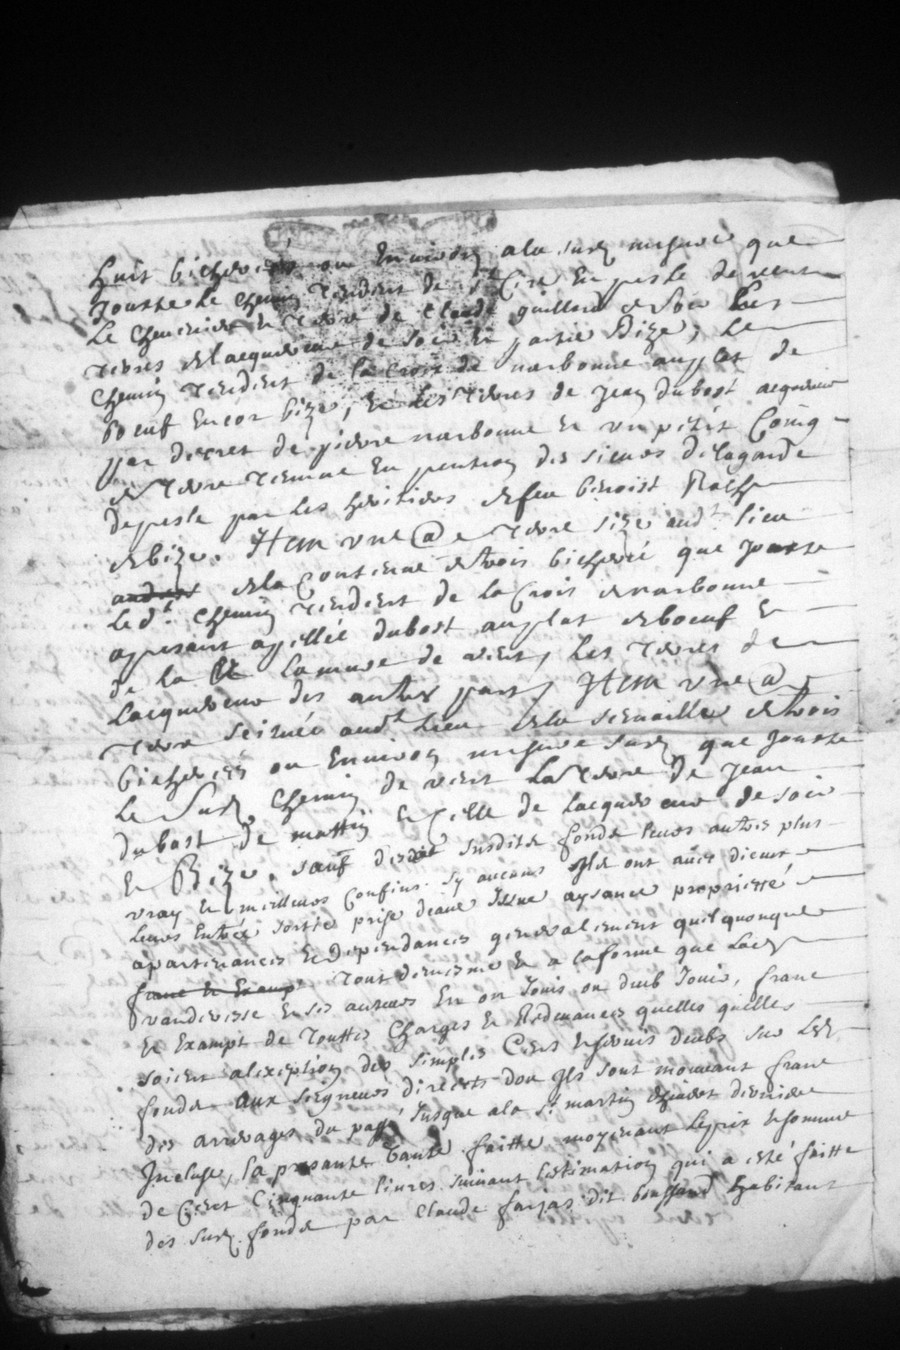 huit bicherées ou Environ a la susd mesure que
Jouxte le Chemin tendent de St Cire En perle de vent
Le Chemin de terre de Claude guillord de Soir Les
terres de lacquereur de Soir en partie Bize, Le
Chemin tendent de la Croix de narbonne au plat de
boeuf Encor bize, Et les terres de Jean dubost acquereur
par decret de pierre narbonne Et un petit Coing
de terre tenue En pention des sieurs de lagarde
de perle par les heritiers de feu benoist
de bize. Item une @ terre size audt lieu
de la Contenue de trois bicherée que Jouxte
Led.t Chemin tendent de la Croix de narbonne
apresent apellée dubost au plat de boeuf Et
de la de vent, Les terres de
Lacquereur des autres parts, Item une @
terre scituée audt lieu de la servaille de trois
bicherées ou Environ mesure susd, que Jouxte
Le Susd Chemin de vent La terre de Jean
dubost de mattin Et Celle de Lacquereur de soir
Et Bize. sauf desdt susdits fonds leurs autres plus
vray Et meilleurs Confins sy aucuns Ils ont avec
leurs Entrée sortie prise deaue Issue aysance proprietté
apartenances Et dependances generalement quelquonque
franc Et Exempt tout de mesme Et a la forme que Lad
vanderesse Et ses auteurs En on Jouis ou deub Jouir, franc
Et Exampt de touttes Charges Et Redevances quelles quelles
soient alexeption des simples Cens Et servis deubs sur Lesd
fonds aux seigneurs directs dou Ils sont mouvant franc
des arrerages du passé Jusque a la St martin derniere
Incluse, la presante vante faitte moyenant le prix Et somme
de Cent Cinquante livres suivant l'estimation qui a esté faitte
des susd. fonds par Claude farjas dit bouffard habitant